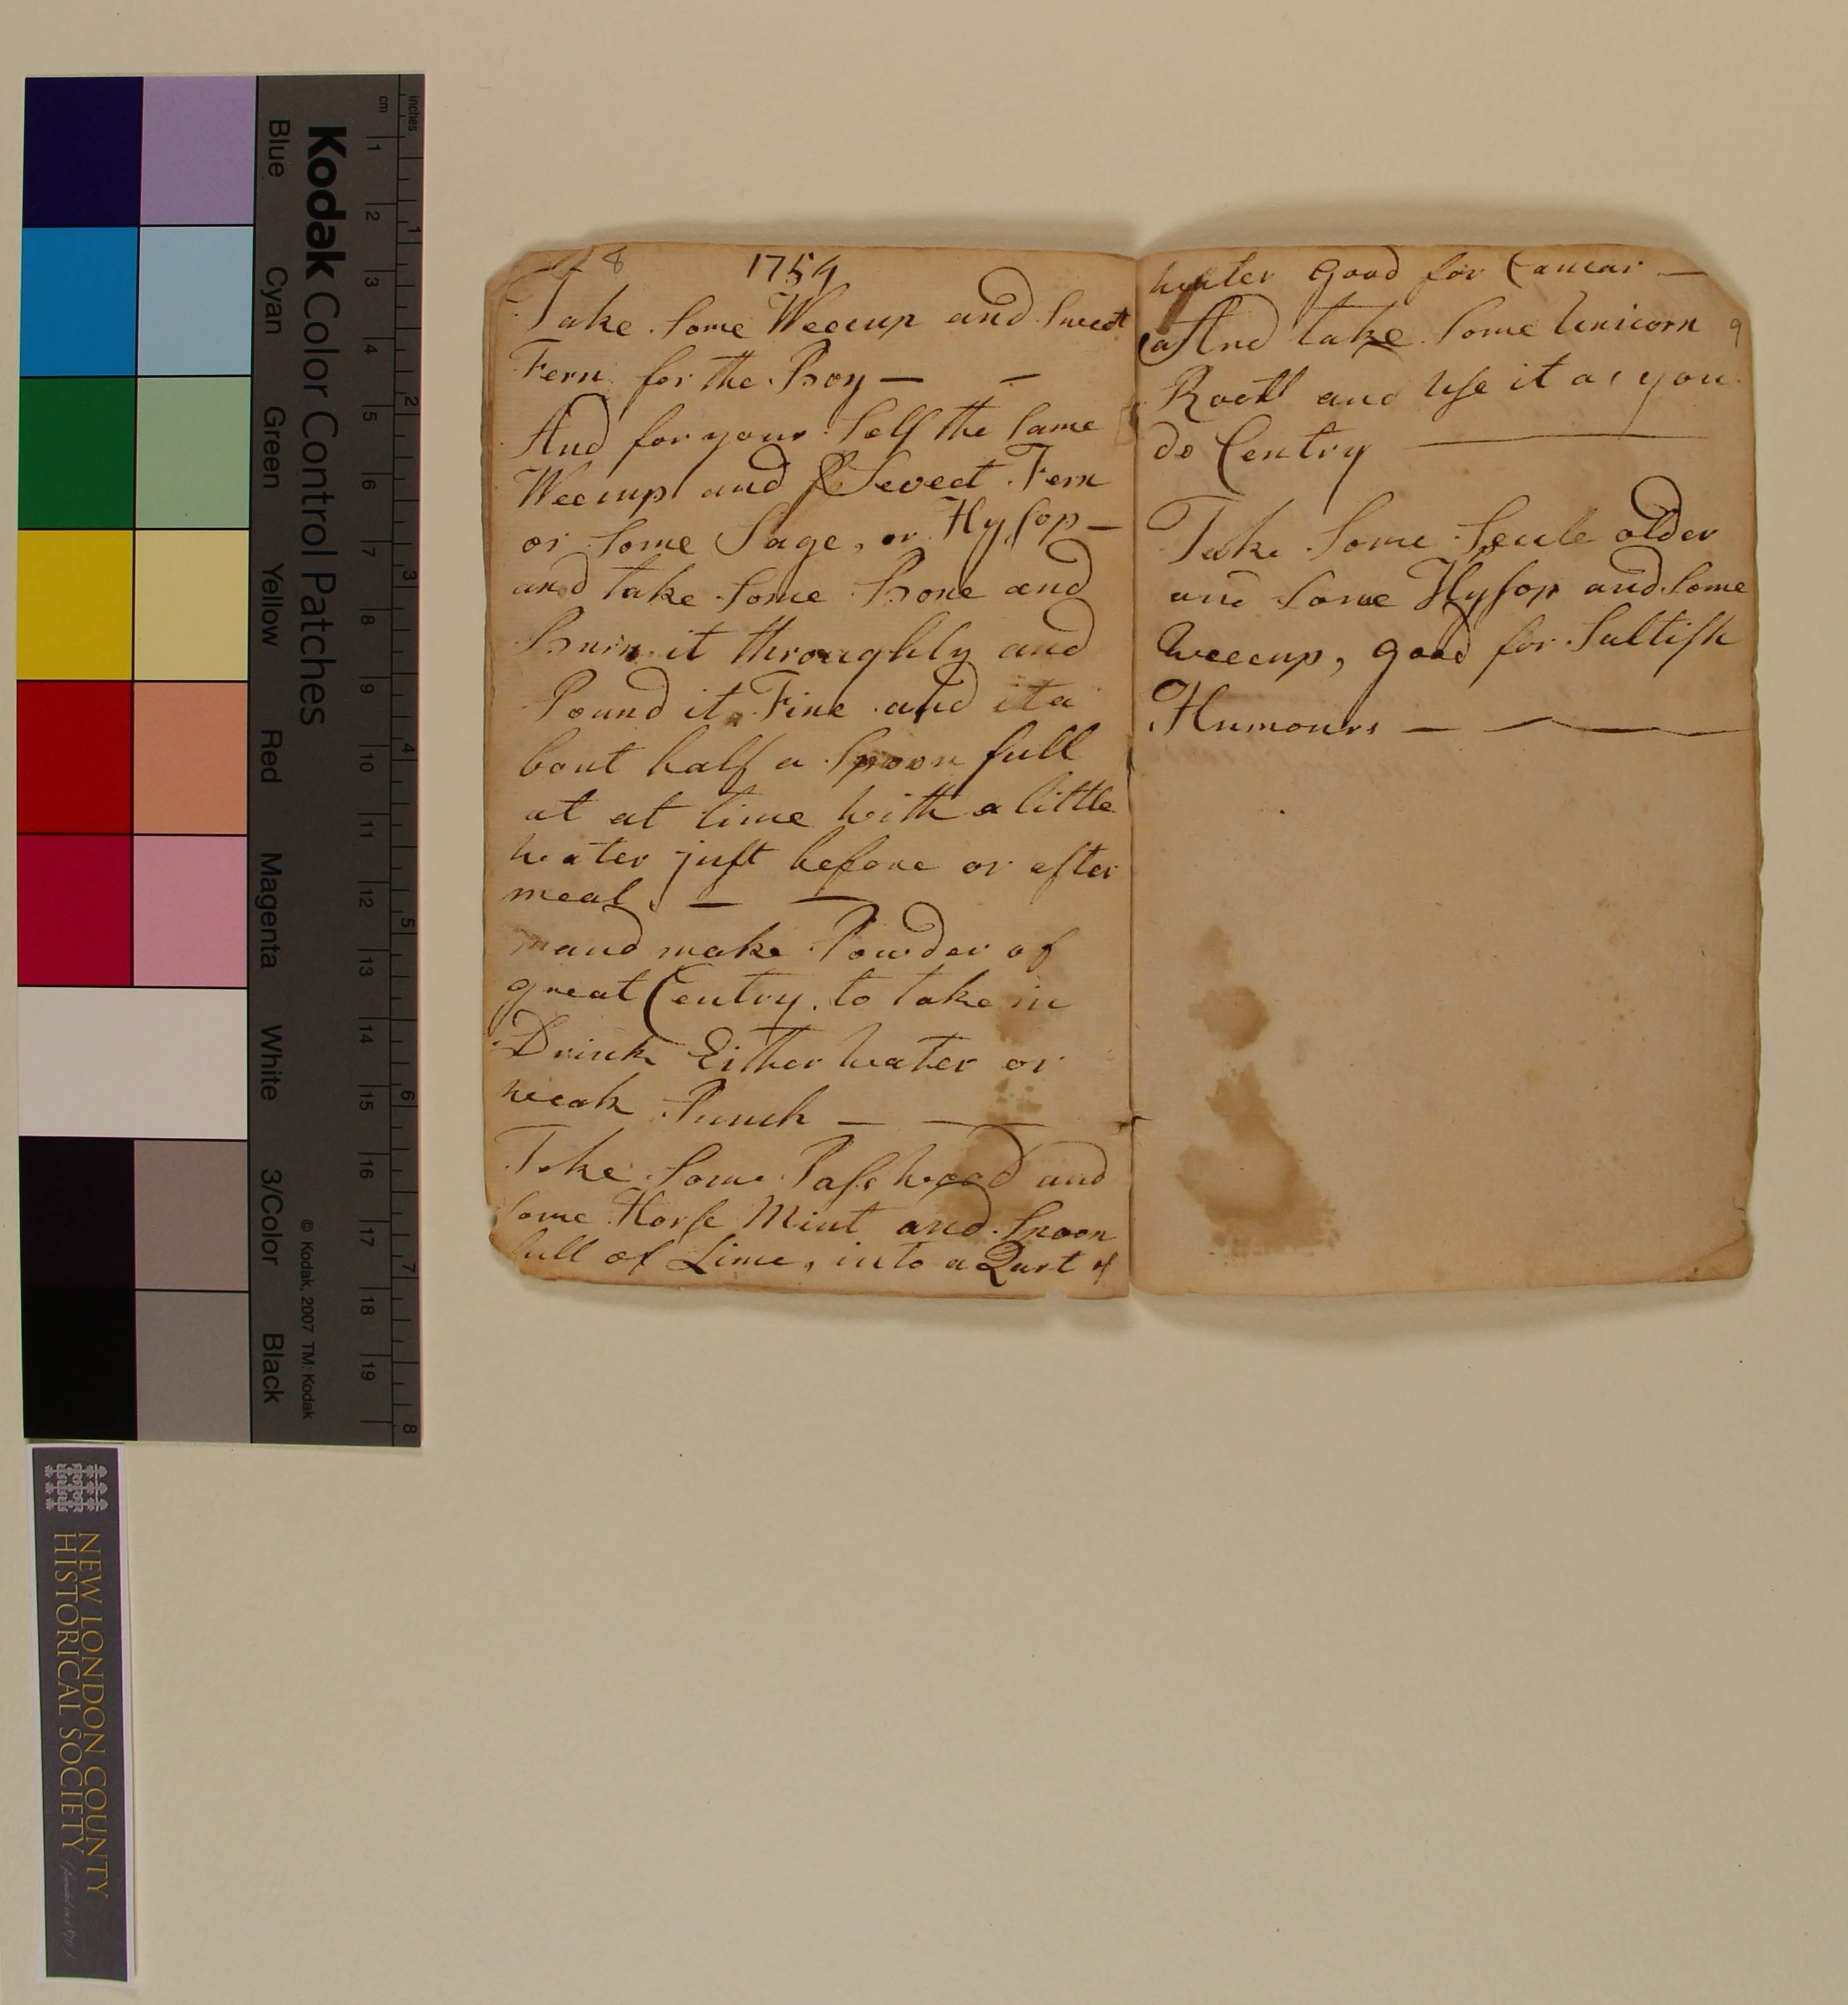 8 1754
Take Some Weecup and Sweet
Fern for the Boy — —
And for your Self the Same
Weecup and Sweet Fern
or Some Sage, or Hysop —
and take Some Bone and
Burn it throughly and
Pound it Fine and it a
bout half a Spoon full
at at time with a little
water just before or after
meal. — —
and make Powder of
great Centry. to take in
Drink Either water or
weak Punch — —
Take Some Pass wood and
Some Horse Mint and Spoon
full of Lime, into a Qart of
water Good for Cancar —
And take Some Unicorn 9
Root and Use it as you
do Centry —
Take Some older
and Some Hysop and Some
Weecup, good for Saltish
Humours — — —
Kodak Color Control Patches
Blue Cyan Green Yellow Red Magenta White 3/Color Black
© Kodak, 2007 TM: Kodak
inches 1 2 3 4 5 6 7 8
cm 1 2 3 4 5 6 7 8 9 10 11 12 13 14 15 16 17 18 19
NEW LONDON COUNTY
HISTORICAL SOCIETY